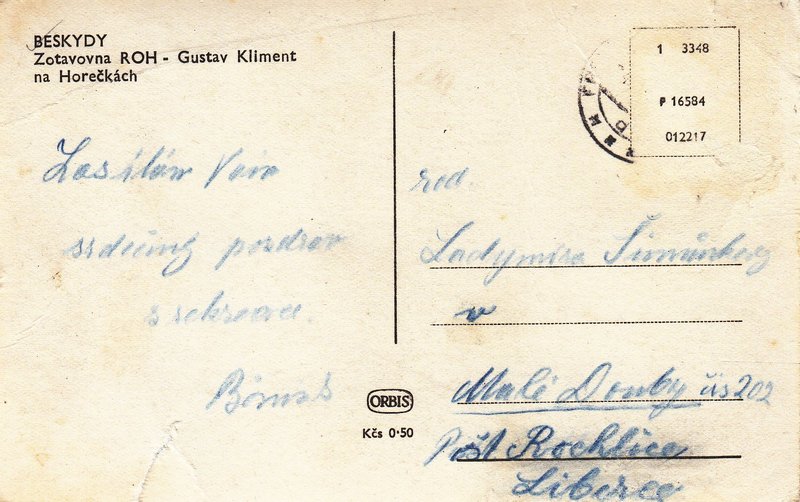 BESKYDY
Zotavovna ROH - Gustav Kliment
na Horečkách
1 3348
P 16584
012217
Zasílám Vám
srdečný pozdrav
z rekreace.
rod.
Ladymira
v
Malé Douby čís 202
Pošt Rochlice
Liberec
ORBIS
Kčs 0·50